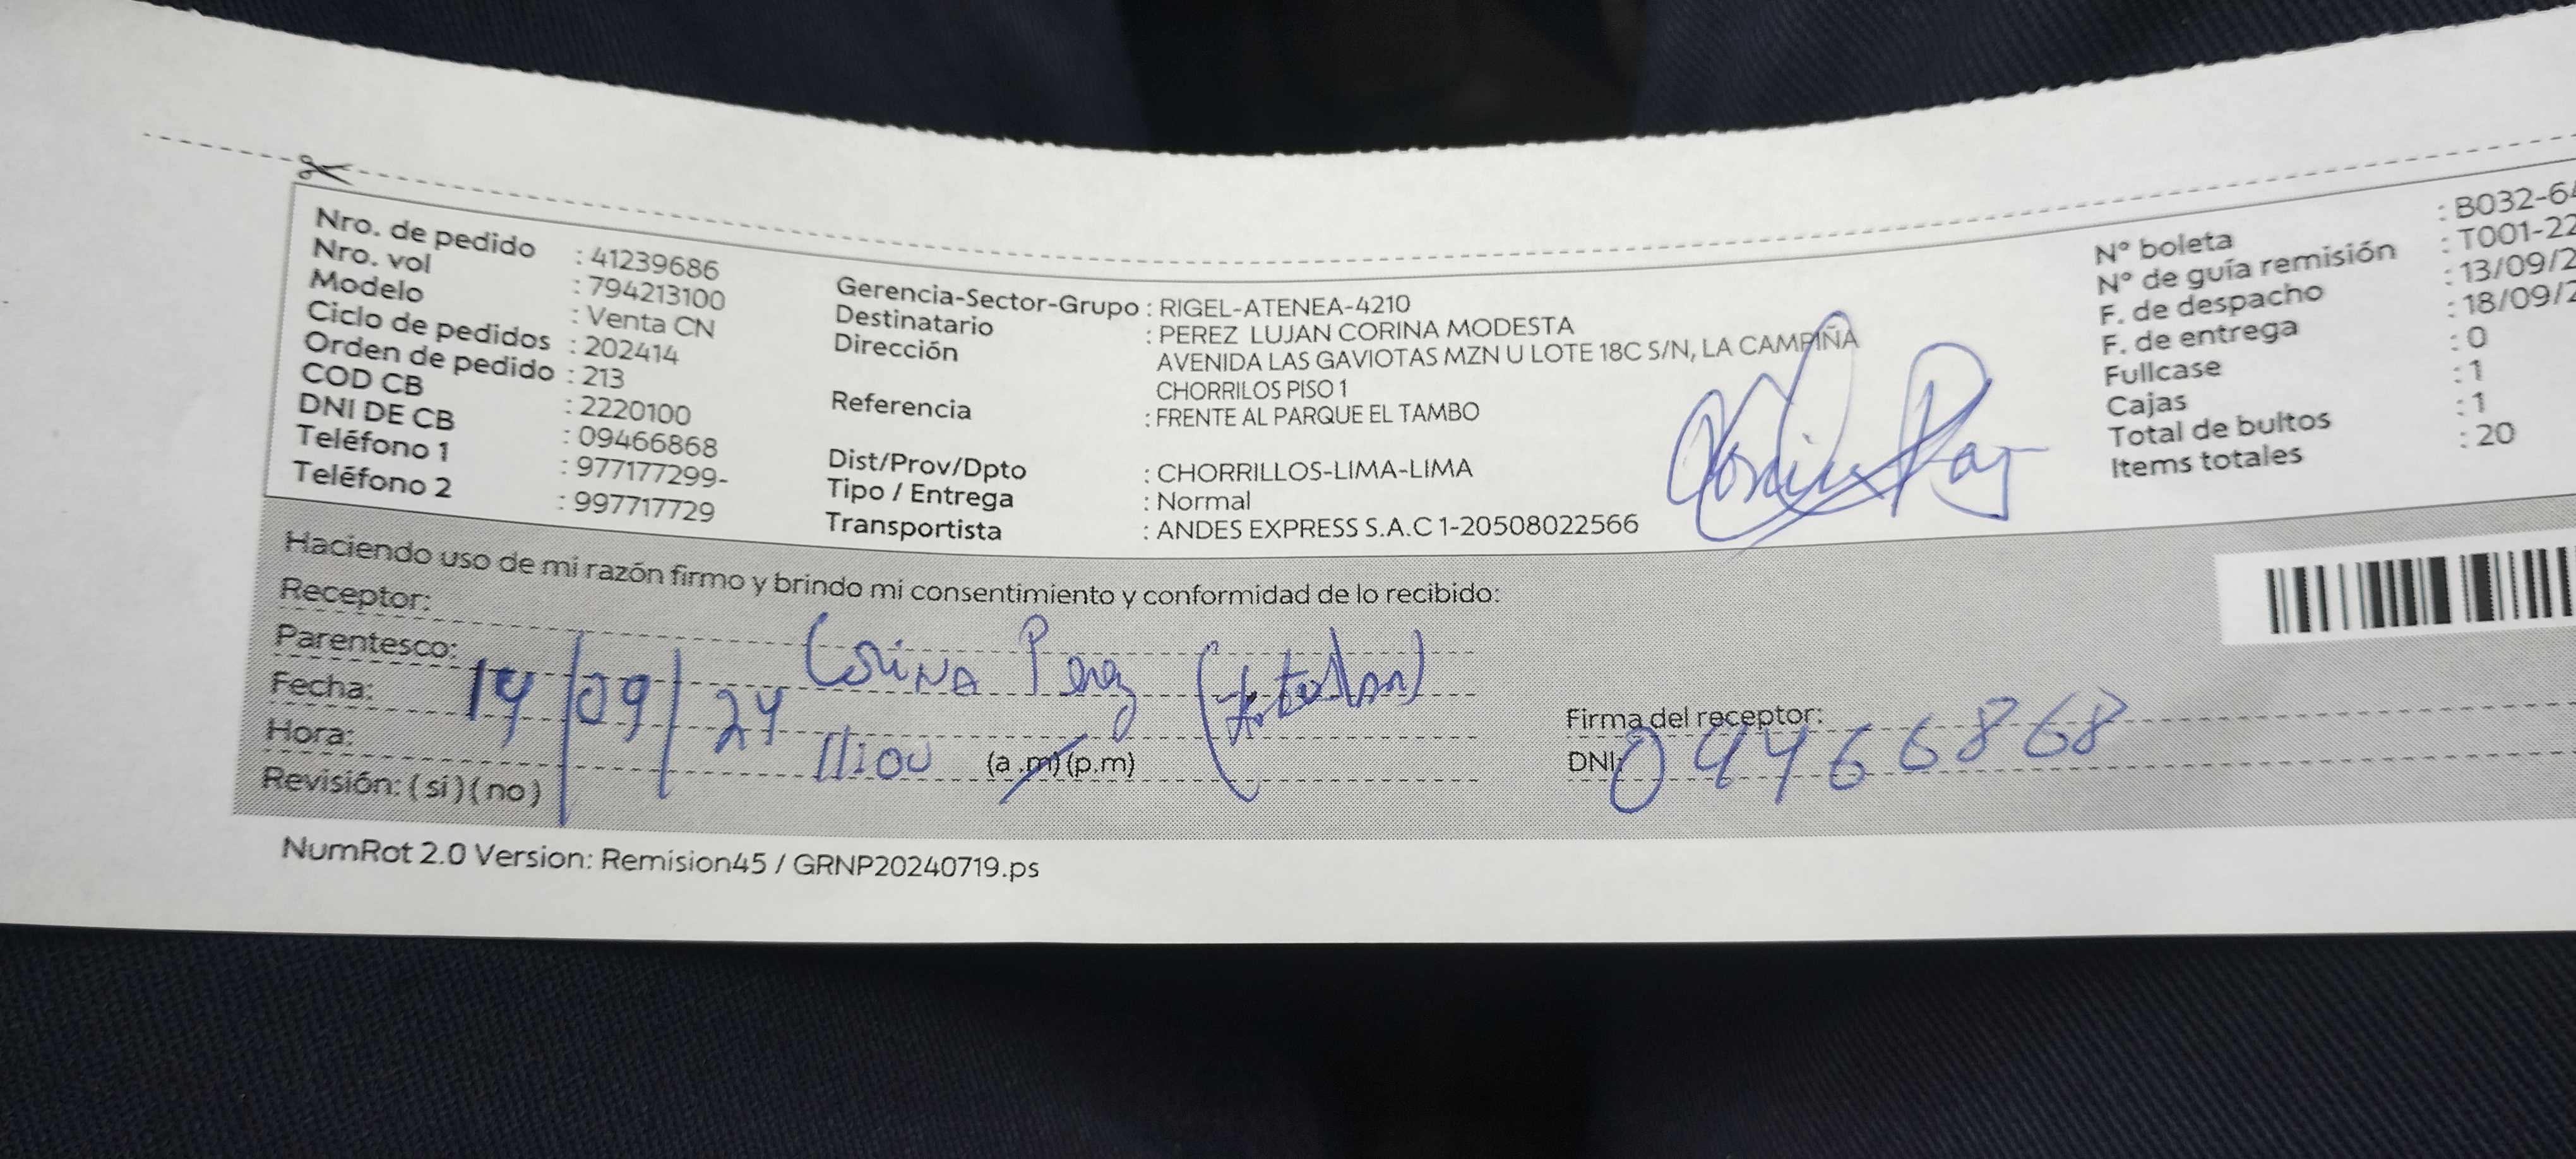 Nro. de pedido : 41239686
Nro. vol : 794213100
Modelo : Venta CN
Ciclo de pedidos : 202414
Orden de pedido : 213
COD CB : 2220100
DNI DE CB : 09466868
Teléfono 1 : 977177299-
Teléfono 2 : 997717729
Gerencia-Sector-Grupo : RIGEL-ATENEA-4210
Destinatario : PEREZ LUJAN CORINA MODESTA
Dirección AVENIDA LAS GAVIOTAS MZN U LOTE 18C S/N, LA CAMPIÑA
CHORRILOS PISO 1
Referencia : FRENTE AL PARQUE EL TAMBO
Dist/Prov/Dpto : CHORRILLOS-LIMA-LIMA
Tipo / Entrega : Normal
Transportista : ANDES EXPRESS S.A.C 1-20508022566
N° boleta : B032-64
N° de guía remisión : T001-22
F. de despacho : 13/09/2
F. de entrega : 18/09/2
Fullcase : 0
Cajas : 1
Total de bultos : 1
Items totales : 20
Haciendo uso de mi razón firmo y brindo mi consentimiento y conformidad de lo recibido:
Receptor:
Parentesco: Corina Perez
Fecha: 14/09/24
Hora: 11:00 (a.m) (p.m)
Revisión: (si) (no)
Firma del receptor:
DNI: 09466868
NumRot 2.0 Version: Remision45 / GRNP20240719.ps